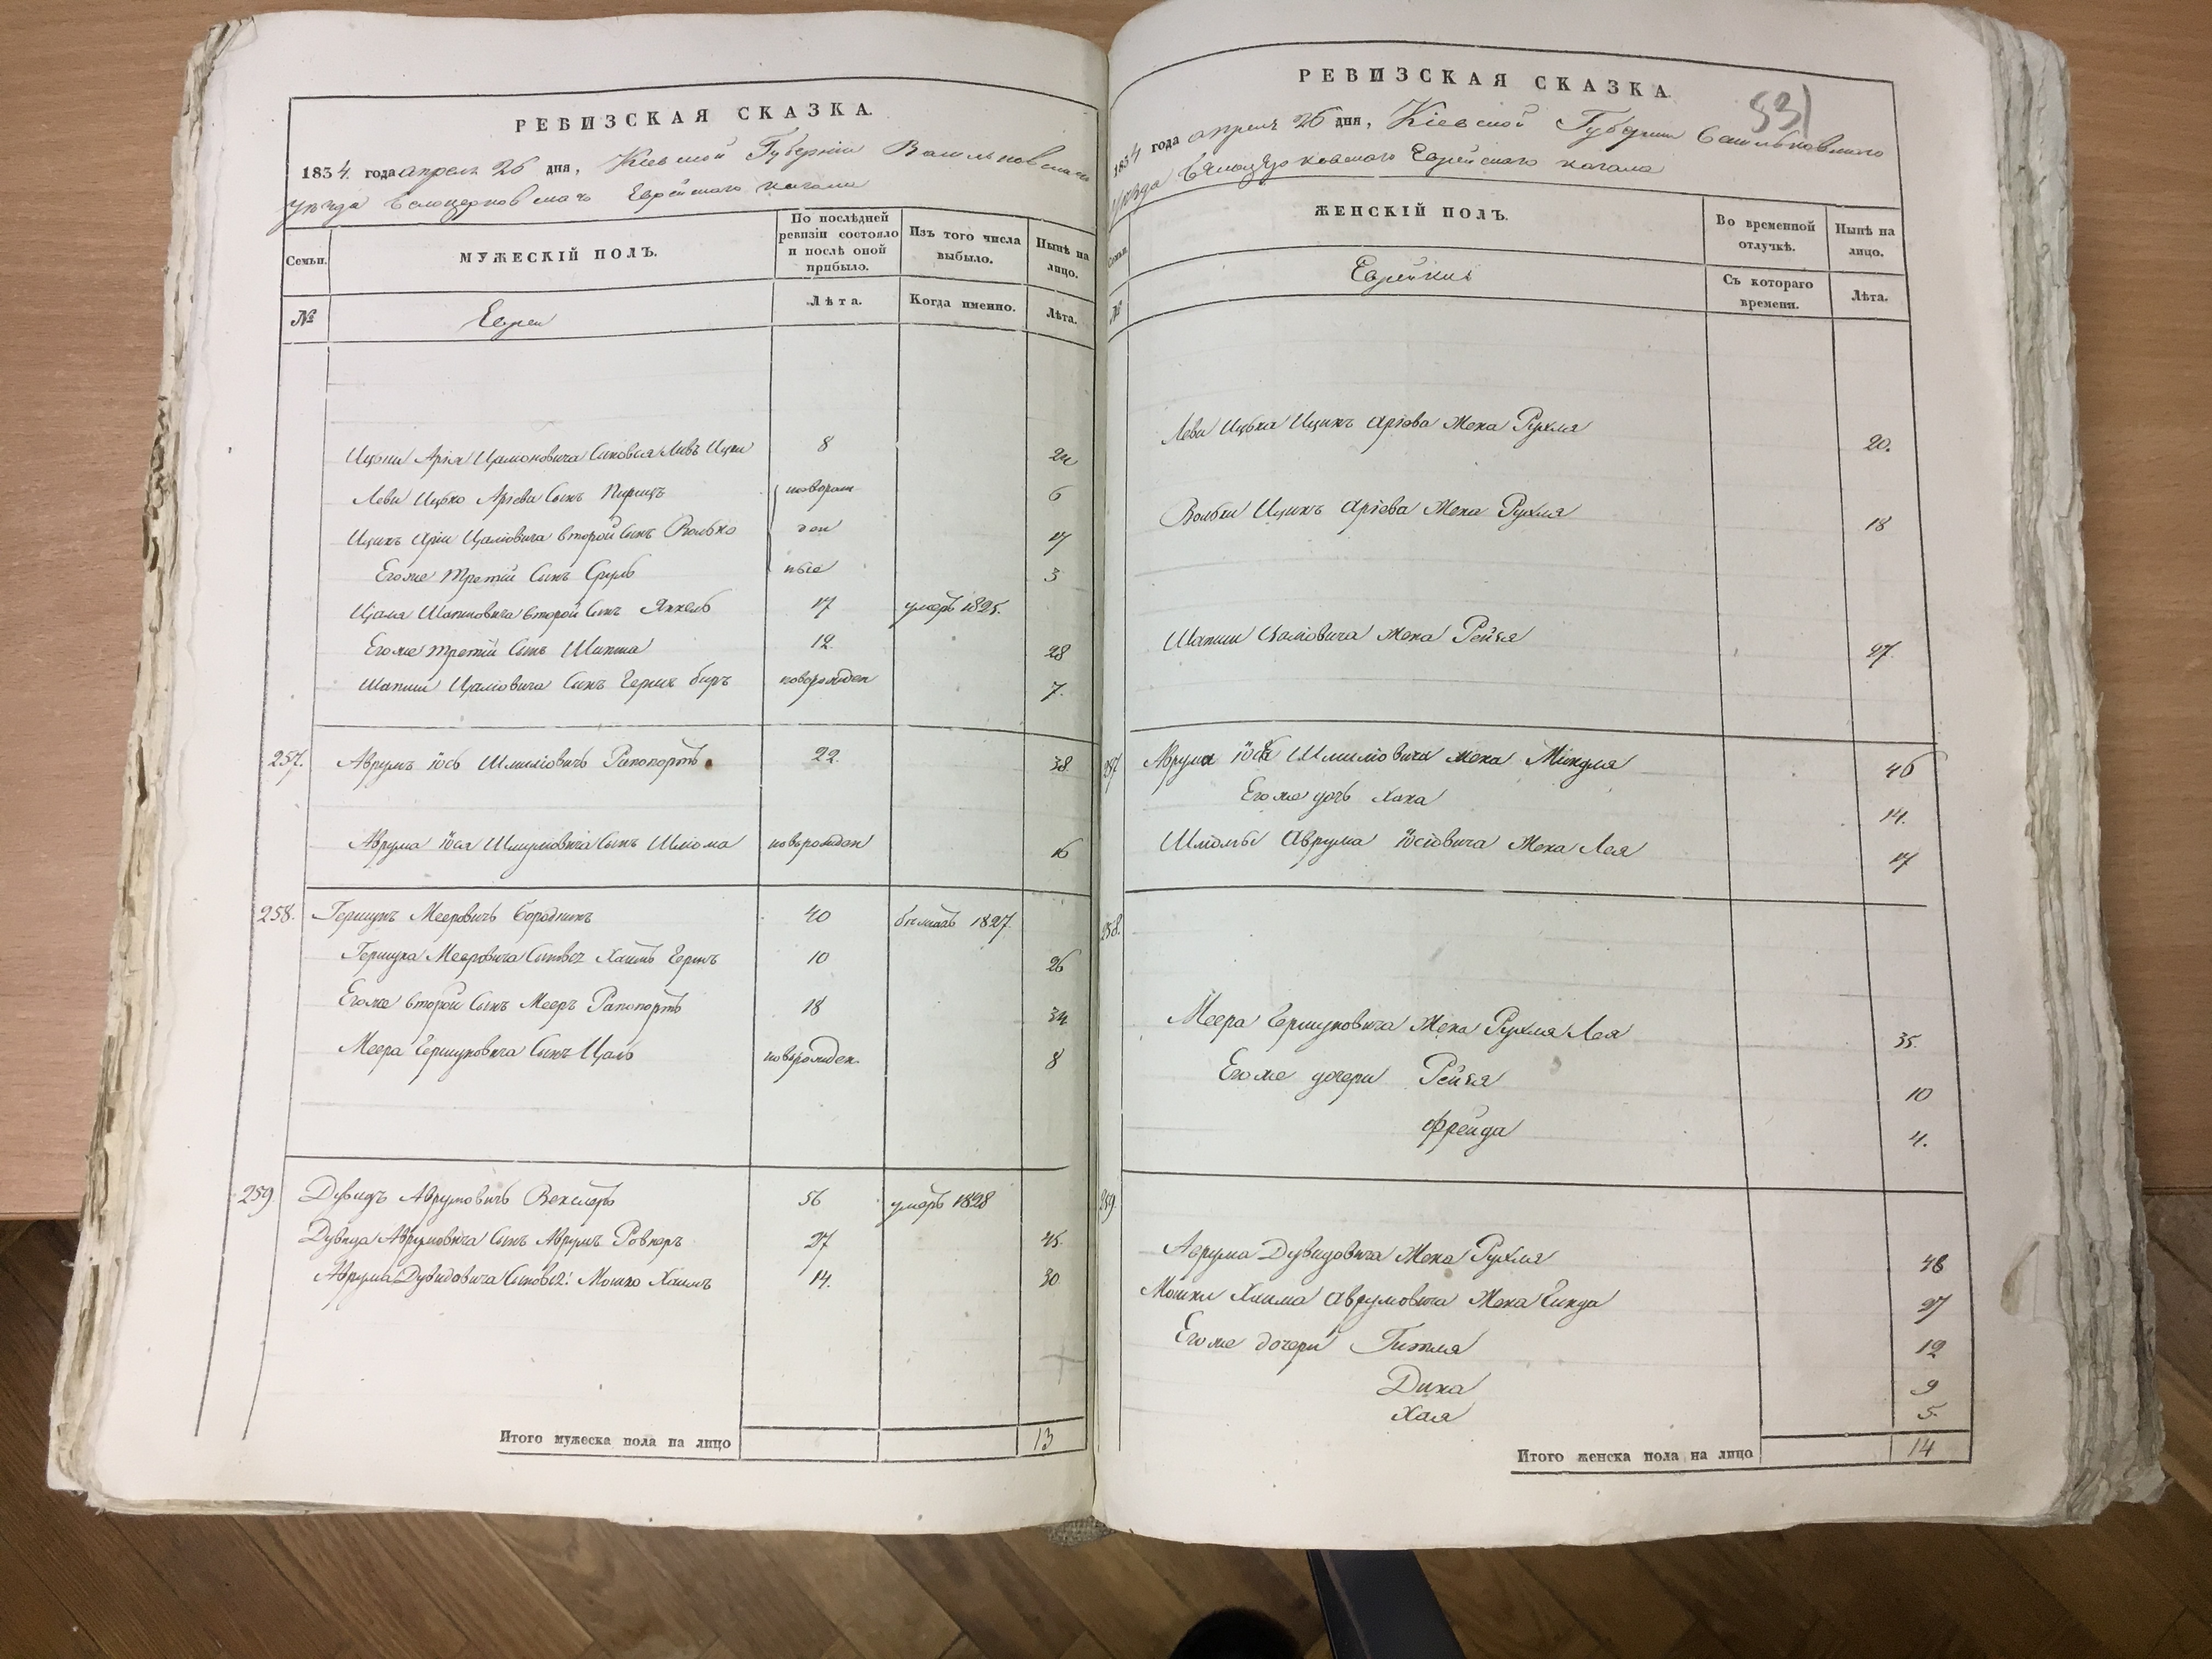 РЕВИЗСКАЯ СКАЗКА.
1834 года апреля 26 дня, Кіевской Губерніи Васильковскаго
уѣзда Белоцерковскаго Еврейскаго кагала
Семьи.
МУЖЕСКІЙ ПОЛЪ.
По послѣдней ревизіи состояло и послѣ оной прибыло.
Изъ того числа выбыло.
Нынѣ на лицо.
№
Евреи
Лѣта.
Когда именно.
Лѣта.
Ицки Арія Цаліовича Сыновья Левъ Ицко 8 24
Леви Ицько Аріева Сынъ Пирицъ новорож 6
Ицикъ Арія Цаліовича второй Сынъ Волько ден 17
Егоже третій Сынъ Сруль ные 3
Цаля Шапсиовича второй Сынъ Янкель 17 умеръ 1825.
Егоже третій Сынъ Шапша 12 28
Шапши Цаліовича Сынъ Герш беръ новорожден 7.
257. Аврумъ Іось Шмуліовичъ Рапопортъ. 22. 38.
Аврума Іося Шмуліовича Сынъ Шліома новорожден 16
258. Гершунъ Мееровичъ Бородникъ 40 1827.
Гершуна Мееровича Сыновья Хаимъ Гершъ 10 26
Егоже второй Сынъ Мееръ Рапопортъ 18 34
Меера Гершуновича Сынъ Цаль новорожден. 8
259 Дувидъ Аврумовичъ Векслеръ 56 умеръ 1828
Дувида Аврумовича Сынъ Аврумъ Ровнеръ 27 45.
Аврума Дувидовича Сыновья: Мошко Хаимъ 14. 30
Итого мужеска пола на лицо 13
531
РЕВИЗСКАЯ СКАЗКА.
1834 года апреля 26 дня, Кіевской Губерніи Васильковскаго
уѣзда Бѣлоцерковскаго Еврейскаго кагала
Семьи.
ЖЕНСКІЙ ПОЛЪ.
Во временной отлучкѣ.
Нынѣ на лицо.
№
Еврейки
Съ котораго времени.
Лѣта.
Леви Ицька Ицикъ Аріова жена Рухля 20.
Вольки Ицикъ Аріова жена Рухля 18
Шапши Цаліовича жена Рейзя 27.
257 Аврума Іося Шмуліовича жена Миндля 46
Егоже дочь Хана 14.
Шліомы Аврума Іосіовича жена Лея 17
258.
Меера Гершуновича жена Рухля Лея 35.
Егоже дочери Рейзя 10
Фрейда 4.
259
Аврума Дувидовича жена Рухля 48
Мошки Хаима Аврумовича жена Гинда 27
Егоже дочери Гитля 12
Дина 9
Хая 5.
Итого женска пола на лицо 14